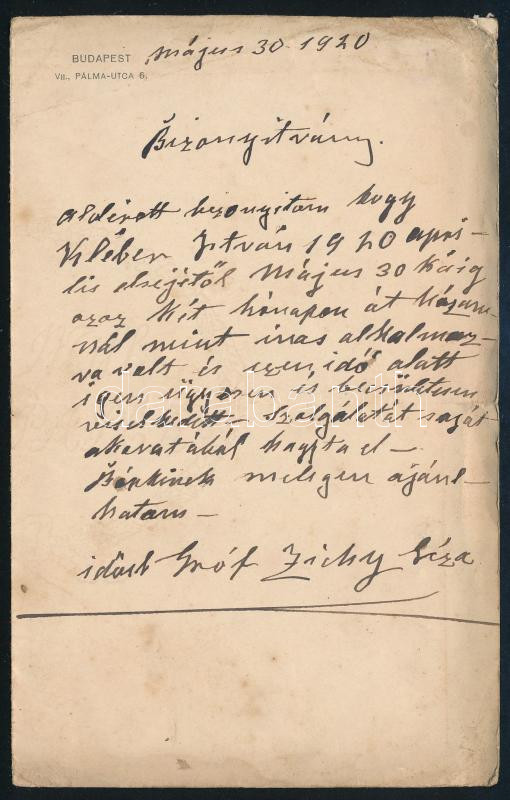 BUDAPEST
VII., PÁLMA-UTCA 6.
május 30. 1920
Bizonyitvány.
Alólirott bizonyitom hogy
Kléber István 1920 ápri-
lis elsejétől Május 30 káig
azaz két hónapon át házam-
nál mint inas alkalmaz-
va volt és ezen idő alatt
igen ügyesen és becsületesen
viselkedett. Szolgálatát saját
akaratából hagyta el –
Bárkinek melegen ajánl-
hatom –
idősb Gróf Zichy Géza
darabanth